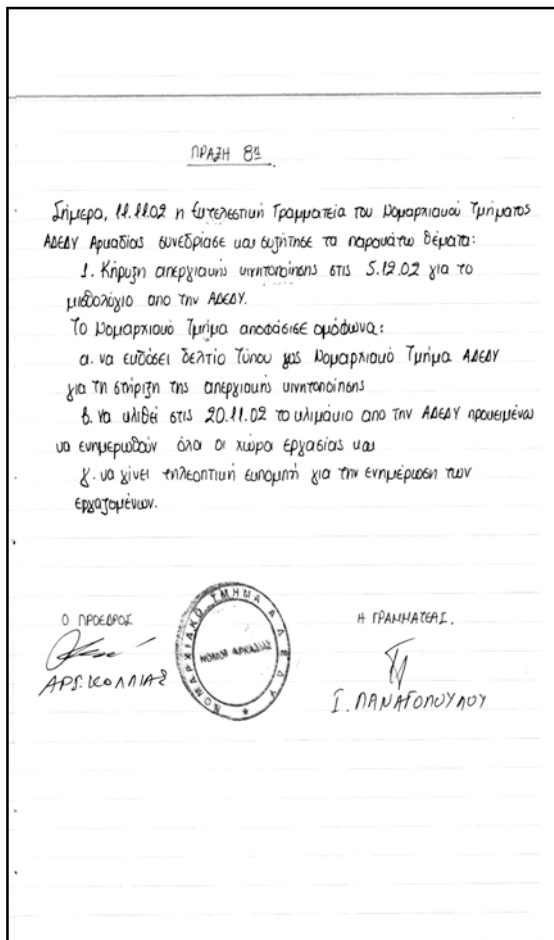 ΠΡΑΞΗ 8η
Σήμερα, 11.11.02 η Εκτελεστική Γραμματεία του Νομαρχιακού Τμήματος
ΑΔΕΔΥ Αρκαδίας συνεδρίασε και συζήτησε τα παρακάτω θέματα:
1. Κήρυξη απεργιακής κινητοποίησης στις 5.12.02 για το
μισθολόγιο απο την ΑΔΕΔΥ.
Το Νομαρχιακό Τμήμα αποφάσισε ομόφωνα:
α. να εκδόσει δελτίο Τύπου ως Νομαρχιακό Τμήμα ΑΔΕΔΥ
για τη στήριξη της απεργιακής κινητοποίησης
β. να κλιθεί στις 20.11.02 το κλιμάκιο απο την ΑΔΕΔΥ προκειμένου
να ενημερωθούν όλοι οι χώροι εργασίας και
γ. να γίνει τηλεοπτική εκπομπή για την ενημέρωση των
εργαζομένων.
Ο ΠΡΟΕΔΡΟΣ
ΑΡΙΣ. ΚΟΛΛΙΑΣ
ΝΟΜΑΡΧΙΑΚΟ ΤΜΗΜΑ ΑΔΕΔΥ
ΝΟΜΟΥ ΑΡΚΑΔΙΑΣ
Η ΓΡΑΜΜΑΤΕΑΣ
Ι. ΠΑΝΑΓΟΠΟΥΛΟΥ